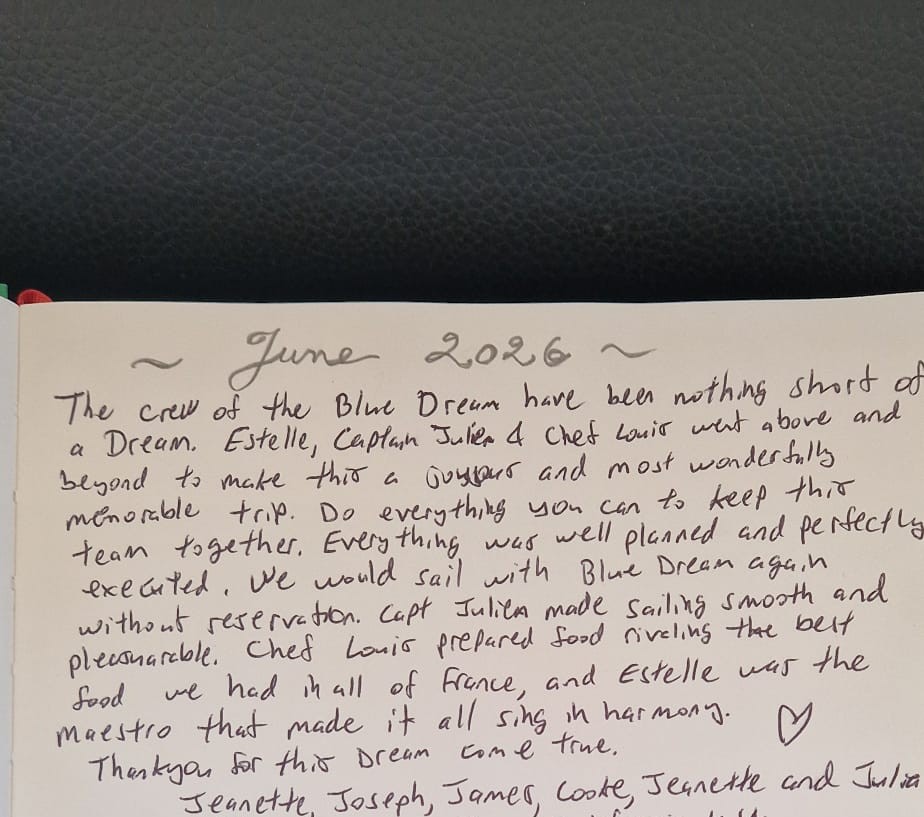 ~ June 2026 ~
The crew of the Blue Dream have been nothing short of
a Dream. Estelle, Captain Julien & Chef Louis went above and
beyond to make this a joyous and most wonderfully
memorable trip. Do everything you can to keep this
team together. Everything was well planned and perfectly
executed. We would sail with Blue Dream again
without reservation. Capt Julien made sailing smooth and
pleasurable. Chef Louis prepared food riveling the best
food we had in all of France, and Estelle was the
Maestro that made it all sing in harmony.
Thankyou for this Dream come true.
Jeanette, Joseph, James, Cooke, Jeanette and Julia